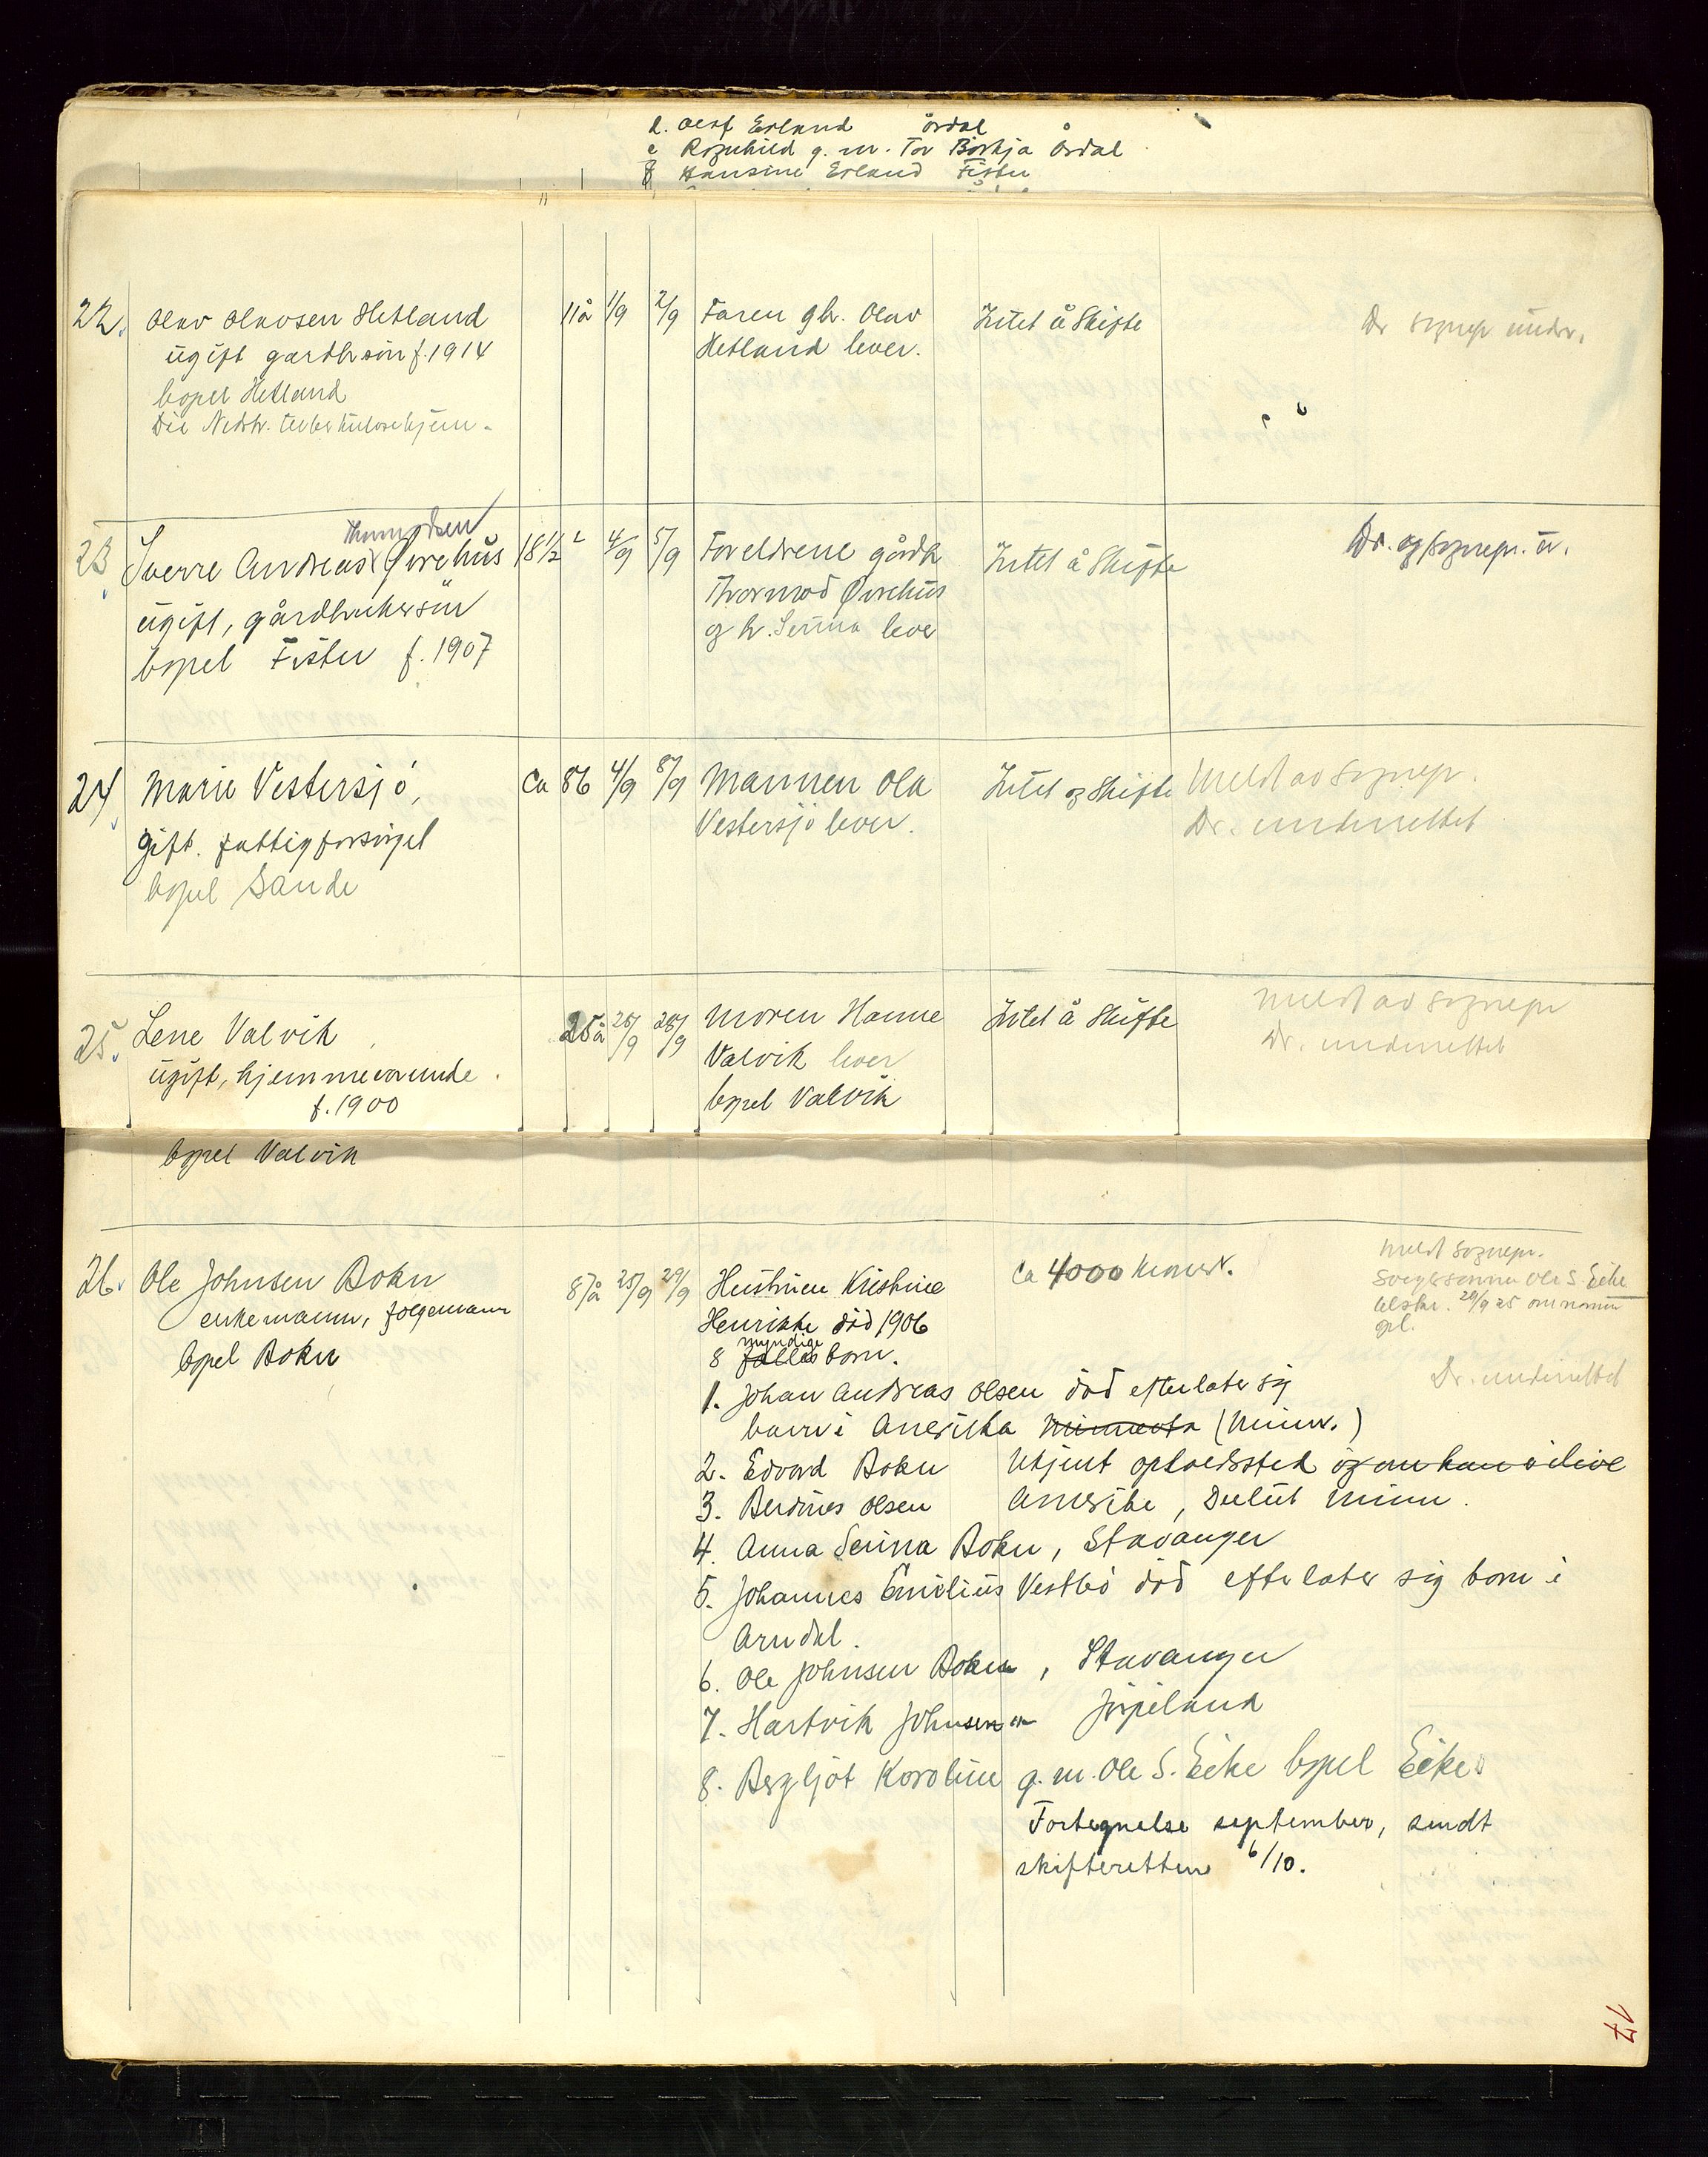 d. Olaf Erland Årdal
e Ragnhild g. m. Tor Børkja Årdal
f Hansine Erland Fister
22. Olav Olavsen Hetland 11 å 1/9 2/9 Faren gbr. Olav Intet å Skifte Dr sognepr under.
ugift gardbr sön f. 1914 Hetland lever.
bopel Hetland
Död Nedstr. tuberkulosehjem.
Thormodsen
23 Sverre Andreas Øvrehus 18 1/2 4/9 5/9 Foreldrene gårdb Intet å Skifte Dr. og sognepr. u.
ugift, gårdbrukersön Thormod Øvrehus
bopel Fister f. 1907 og h. Serina lever
24 Marie Vestersjö, Ca 86 4/9 8/9 Mannen Ola Intet og Skifte Meldt av Sognepr.
gift. fattigforsörget Vestersjö lever. Dr. underrettet
bopel Sande
25. Lene Valvik 25 å 26/9 28/9 Moren Hanne Intet å Skifte Meldt av Sognepr
ugift, hjemmeværende Valvik lever Dr. underrettet
f. 1900 bopel Valvik
bopel Valvik
26. Ole Johnsen Bokn 87 å 25/9 29/9 Hustruen Kristine Ca 4000 kroner. Meldt Sognepr.
enkemann, folgemann Henrikke död 1906 Svigersönnen Ole S. Eike
bopel Bokn myndige tilskr. 29/9 25 om
8 fælles born.
Dr. underrettet
1. Johan Andreas Olsen död efterlater sig
barn i Amerika Minnesota (Minn.)
2. Edvard Bokn Ukjent opholdssted og om han er i live
3. Berdines Olsen Amerika, Dulut Minn.
4. Anna Serina Bokn, Stavanger
5. Johannes Emilius Vestbö död efterlater sig born i
Arndal.
6. Ole Johnsen Bokn, Stavanger
7. Hartvik Johnsen Jörpeland
8. Bergljot Karoline g. m. Ole S. Eike bopel Eike
Fortegnelse september, sendt
skifteretten 6/10.
17